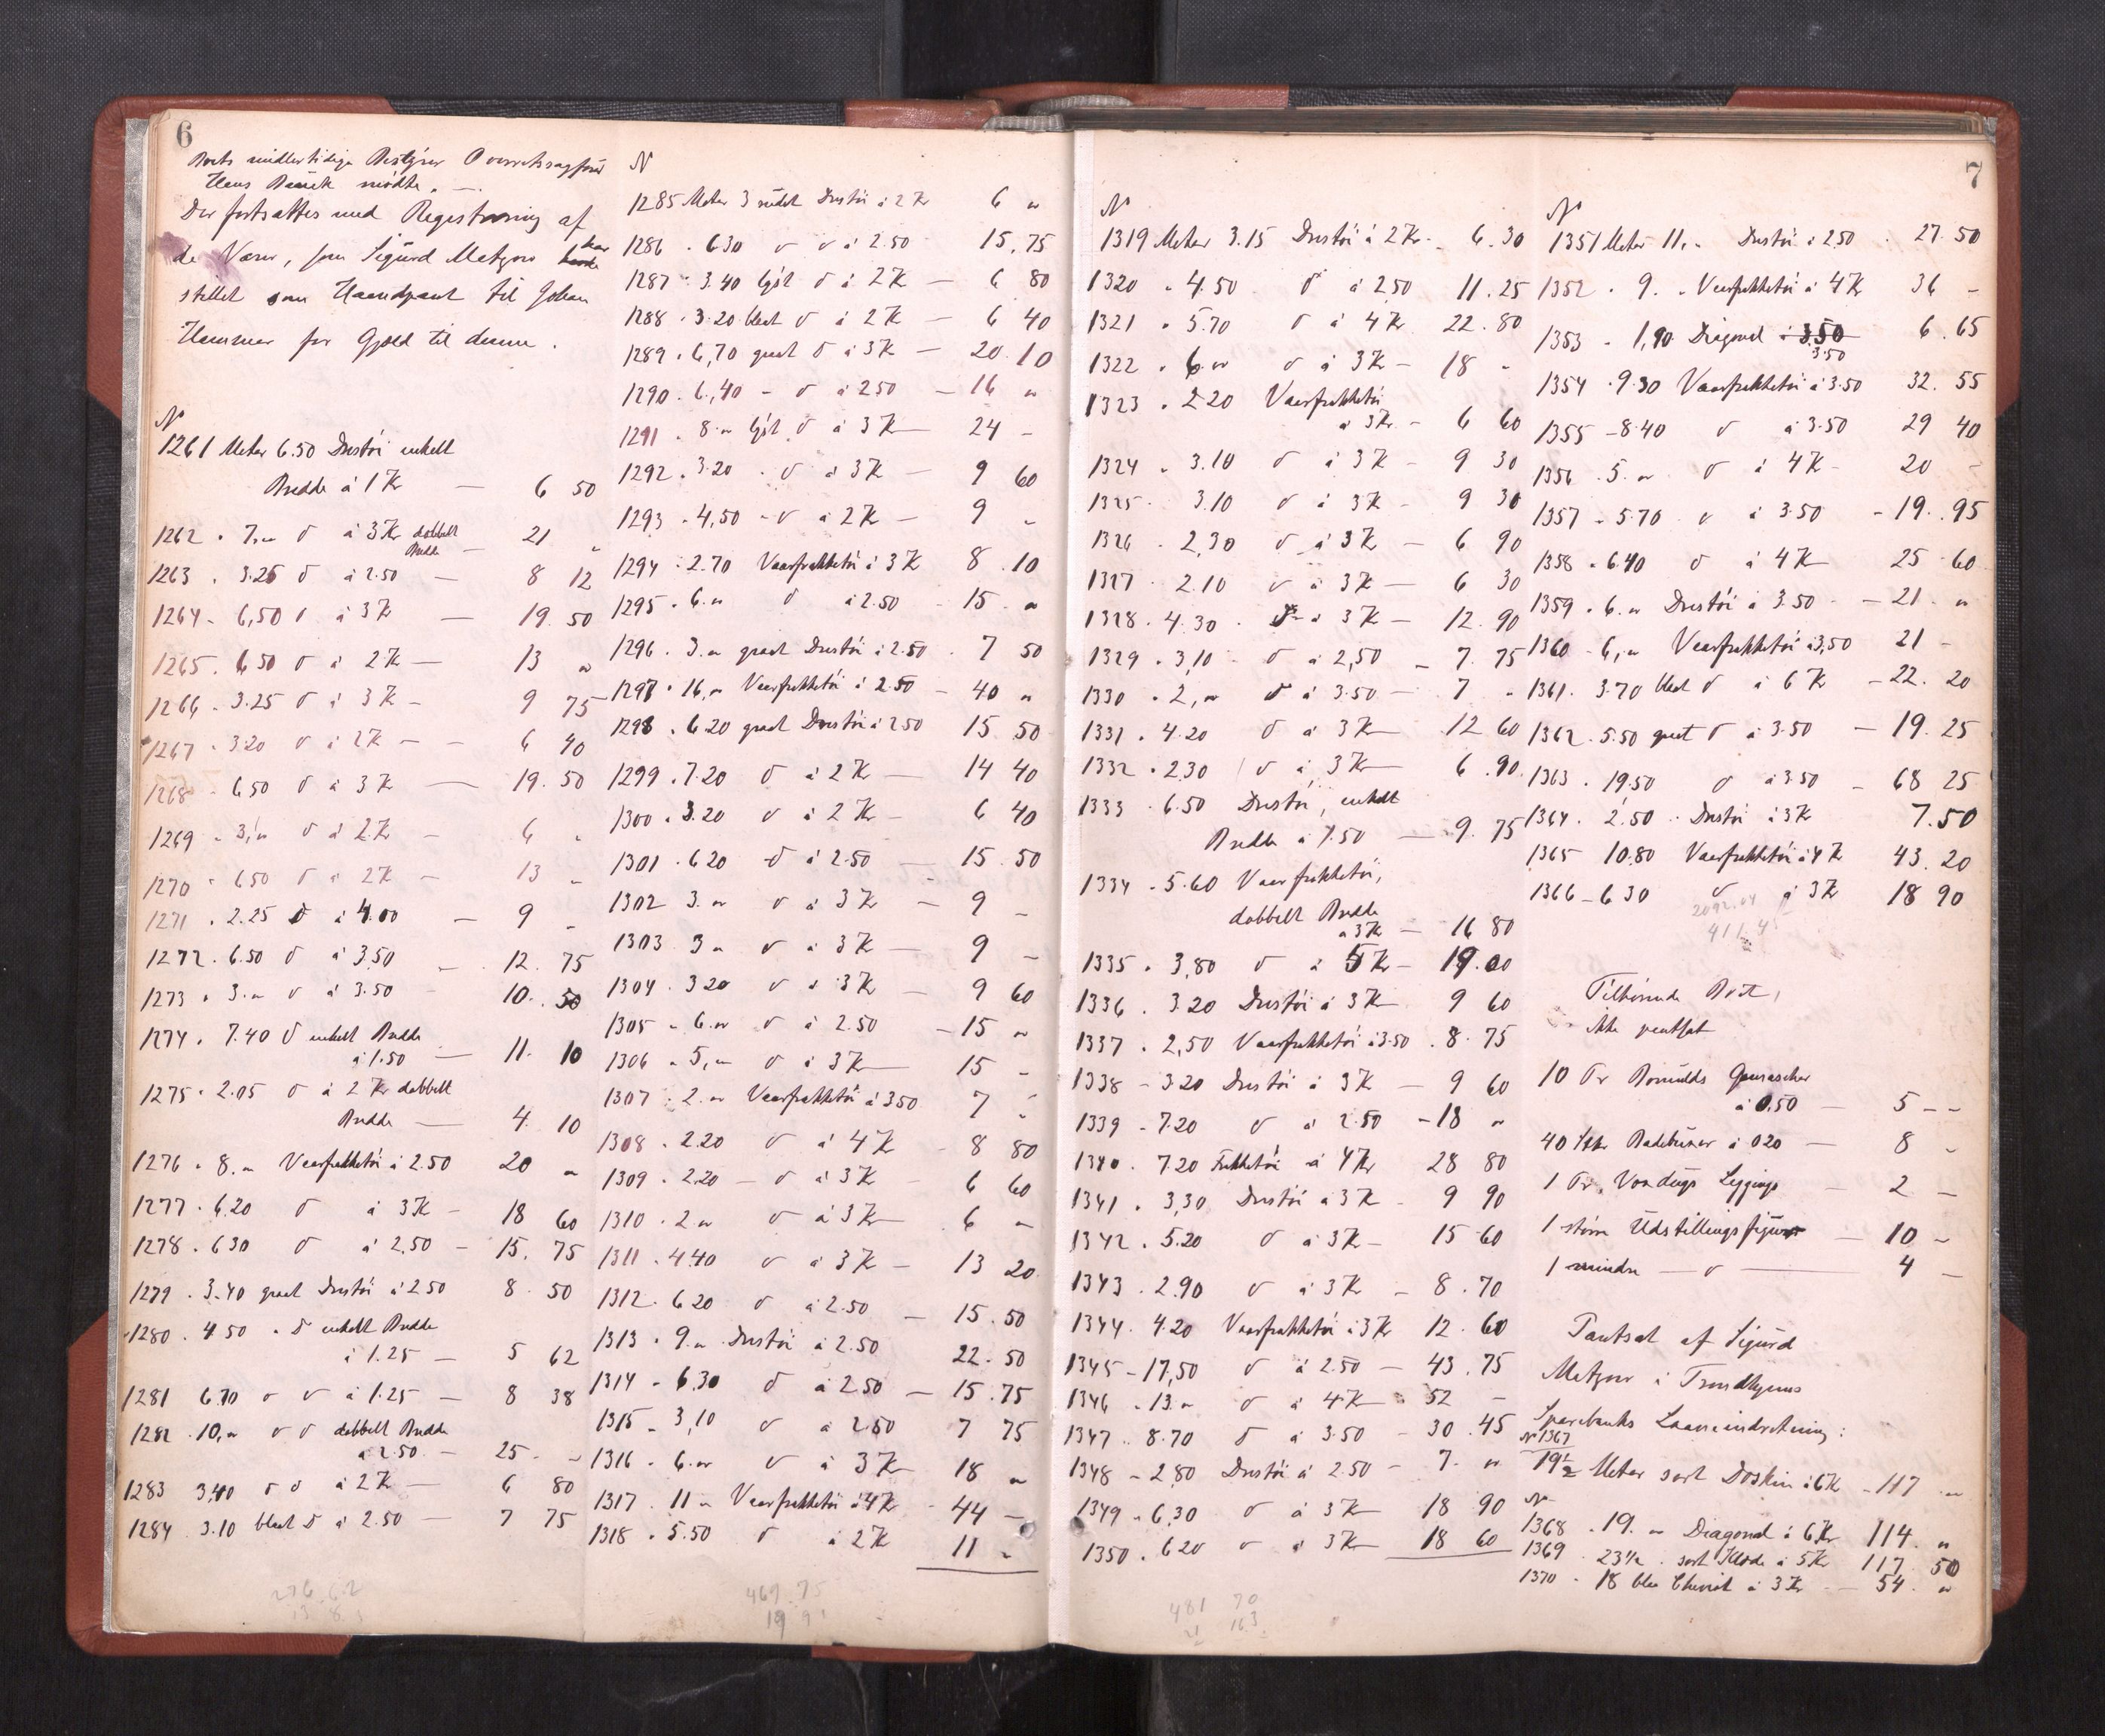 6
Boets midlertidige Bestyrer Overretssagfører
Hans Bauck mødte. —
Der fortsattes med Registrering af
de Varer, som Sigurd Metzner har
stillet som Haandpant til Johan
Hammer for Gjæld til denne.
N
1261 Meter 6.50 Drestöi enkelt
Bredde à 1 Kr — 6 50
1262 . 7,,  d à 3 Kr dobbelt
Bredde — 21 "
1263 . 3.25 d à 2.50 — 8 12
1264 - 6,50 d à 3 Kr — 19.50
1265 . 6.50 d à 2 Kr — 13 "
1266 . 3.25 d à 3 Kr - 9 75
1267 . 3.20 d à 2 Kr — 6 40
1268 - 6.50 d à 3 Kr — 19.50
1269 - 3,,  d à 2 Kr — 6 "
1270 - 6.50 d à 2 Kr — 13 "
1271 . 2.25 d à 4.00 — 9 -
1272 . 6.50 d à 3.50 - 12.75
1273 . 3.,, d à 3.50 - 10.50
1274 . 7.40 d enkelt Bredde
à 1.50 — 11. 10
1275 . 2.05 d à 2 Kr dobbelt
Bredde — 4. 10
1276 . 8.,, Vaarfrakketöi à 2.50 20 "
1277 . 6.20 d à 3 Kr - 18 60
1278 . 6.30 d à 2.50 - 15. 75
1279 . 3.40 graat Drestöi à 2.50 8.50
1280 . 4.50 . d enkelt Bredde
à 1.25 — 5 62
1281 6.70 d d à 1.25 — 8 38
1282 . 10,,, d d dobbelt Bredde
à 2.50 — 25 -
1283 3,40 d d à 2 Kr — 6 80
1284 . 3.10 blaat d à 2.50 — 7 75
276.62
N
1285 Meter 3 rudet Drestöi à 2 Kr 6 "
1286 . 6.30 d d à 2.50 15.75
1287 . 3.40 lyst d à 2 Kr — 6 80
1288 . 3.20 blaat d à 2 Kr — 6 40
1289 . 6,70 graat d à 3 Kr — 20.10
1290 . 6,40 - d à 2.50 — 16 "
1291 . 8.,, lyst d à 3 Kr — 24 -
1292 . 3.20 . d à 3 Kr — 9 60
1293 . 4,50 - d à 2 Kr — 9 "
1294 . 2.70 Vaarfrakketöi à 3 Kr 8.10
1295 . 6.,, d à 2.50 - 15. "
1296 . 3.,, graat Drestöi à 2.50 . 7 50
1297 . 16,,, Vaarfrakketöi à 2.50 - 40 "
1298 . 6.20 graat Drestöi à 2.50 15 50
1299 . 7.20 d à 2 Kr — 14 40
1300 . 3.20 d à 2 Kr - 6 40
1301 . 6.20 d à 2.50 — 15.50
1302 3.,, d à 3 Kr — 9 -
1303 3 ,, d à 3 Kr — 9 -
1304 . 3.20 d à 3 Kr — 9 60
1305 - 6.,, d à 2.50 - 15 "
1306 - 5,,, d à 3 Kr — 15 -
1307 . 2.,, Vaarfrakketöi à 3.50 7 "
1308 . 2.20 d à 4 Kr - 8 80
1309 . 2.20 - d à 3 Kr - 6 60
1310 . 2 ,, d à 3 Kr — 6 "
1311 . 4.40 d à 3 Kr — 13 20
1312 . 6.20 d à 2.50 — 15.50
1313 . 9.,, Drestöi à 2.50 22.50
1314 . 6.30 d à 2.50 — 15.75
1315 - 3,10 d à 2.50 7 75
1316 . 6.,, d à 3 Kr — 18 "
1317 . 11 ,, Vaarfrakketöi à 4 Kr - 44 -
1318 . 5.50 d à 2 Kr 11 "
469.75
7
N
1319 Meter 3.15 Drestöi à 2 Kr - 6.30
1320 . 4.50 d à 2.50 11.25
1321 . 5.70 d à 4 Kr 22.80
1322 . 6.,, d à 3 Kr - 18 -
1323 . 2.20 Vaarfrakketöi
à 3 Kr - 6 60
1324 . 3.10 d à 3 Kr - 9 30
1325 . 3.10 d à 3 Kr - 9 30
1326 . 2,30 d à 3 Kr — 6 90
1327 . 2.10 d à 3 Kr — 6 30
1328 . 4.30 . d à 3 Kr — 12.90
1329 . 3,10 - d à 2,50 - 7.75
1330 . 2,,, d à 3.50 — 7 -
1331 . 4.20 d à 3 Kr — 12 60
1332 . 2.30 d à 3 Kr — 6.90
1333 . 6.50 Drestöi, enkelt
Bredde à 1.50 — 9.75
1334 . 5.60 Vaarfrakketöi,
dobbelt Bredde
à 3 Kr — 16 80
1335 . 3,80 d à 5 Kr - 19.00
1336 . 3.20 Drestöi à 3 Kr 9 60
1337 . 2,50 Vaarfrakketöi à 3.50 . 8.75
1338 - 3.20 Drestöi à 3 Kr — 9 60
1339 - 7.20 d à 2.50 - 18 "
1340 . 7.20 Frakketöi à 4 Kr 28 80
1341 . 3,30 Drestöi à 3 Kr - 9 90
1342 . 5.20 d à 3 Kr - 15 60
1343 . 2.90 d à 3 Kr - 8.70
1344 . 4.20 Vaarfrakketöi à 3 Kr 12.60
1345 - 17,50 d à 2.50 - 43.75
1346 . 13.,, d à 4 Kr 52 -
1347 . 8.70 d à 3.50 - 30.45
1348 - 2,80 Drestöi à 2.50 - 7. "
1349 . 6,30 d à 3 Kr 18 90
1350 . 6.20 d à 3 Kr 18 60
481 70
N
1351 Meter 11.- Drestöi à 2.50 . 27.50
1352 . 9. - Vaarfrakketöi à 4 Kr 36 -
1353 - 1,90 Diagonal à 3.50 6.65
3.50
1354 . 9.30 Vaarfrakketöi à 3.50 32.55
1355 - 8.40 d à 3.50 29 40
1356 . 5.,, d à 4 Kr - 20 -
1357 - 5.70 d à 3.50 - 19.95
1358 . 6.40 d à 4 Kr 25.60
1359 . 6.,, Drestöi à 3.50 - 21. "
1360 - 6,,, Vaarfrakketöi à 3,50 21 -
1361 . 3.70 blaat d à 6 Kr - 22.20
1362 . 5.50 graat d à 3.50 — 19.25
1363 . 19.50 d à 3.50 - 68 25
1364 . 2.50 . Drestöi à 3 Kr 7.50
1365 10.80 Vaarfrakketöi à 4 Kr 43.20
1366 - 6.30 d à 3 Kr 18 90
Tilhørende Boet,
ikke pantsat
10 Pr Bomulds Gamascher
à 0,50 — 5 --
40 Stkr Badebuxer à 0.20 — 8 -
1 Pr. Vandrings Leggings — 2 -
1 større Udstillingsfigur — 10 -
1 mindre — d — 4 -
Pantsat af Sigurd
Metzner i Trondhjems
Sparebanks Laaneindretning:
N 1367
19½ Meter sort Doskin à 6 Kr - 117 "
N
1368 . 19. ,, Diagonal à 6 Kr 114. "
1369 . 23½ . sort Klæde à 5 Kr 117.50
1370 . 18 blaa Cheviot à 3 Kr — 54. "